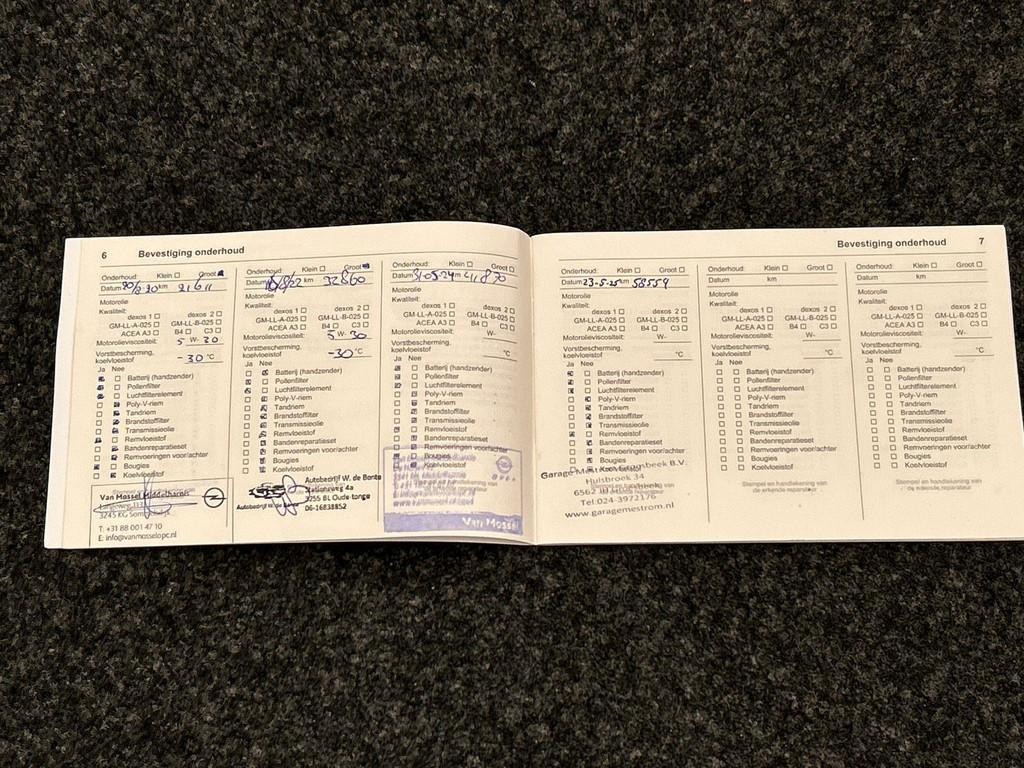 6 Bevestiging onderhoud
Onderhoud: Klein Groot
Datum km 21611
Motorolie
Kwaliteit:
dexos 1 dexos 2
GM-LL-A-025 GM-LL-B-025
ACEA A3 B4 C3
Motorolieviscositeit: 5 W- 30
Vorstbescherming,
koelvloeistof -30 °C
Ja Nee
Batterij (handzender)
Pollenfilter
Luchtfilterelement
Poly-V-riem
Tandriem
Brandstoffilter
Transmissieolie
Remvloeistof
Bandenreparatieset
Remvoeringen voor/achter
Bougies
Koelvloeistof
Van Mossel Middelharnis
3245 KG
T: +31 88 001 47 10
E: info@vanmosselopc.nl
Onderhoud: Klein Groot
Datum km 32860
Motorolie
Kwaliteit:
dexos 1 dexos 2
GM-LL-A-025 GM-LL-B-025
ACEA A3 B4 C3
Motorolieviscositeit: 5 W- 30
Vorstbescherming,
koelvloeistof -30 °C
Ja Nee
Batterij (handzender)
Pollenfilter
Luchtfilterelement
Poly-V-riem
Tandriem
Brandstoffilter
Transmissieolie
Remvloeistof
Bandenreparatieset
Remvoeringen voor/achter
Bougies
Koelvloeistof
Autobedrijf W. de Bonte
Stationsweg 4a
3255 BL Oude-tonge
06-16838852
Onderhoud: Klein Groot
Datum 31-05-24 km 41870
Motorolie
Kwaliteit:
dexos 1 dexos 2
GM-LL-A-025 GM-LL-B-025
ACEA A3 B4 C3
Motorolieviscositeit: W-
Vorstbescherming,
koelvloeistof °C
Ja Nee
Batterij (handzender)
Pollenfilter
Luchtfilterelement
Poly-V-riem
Tandriem
Brandstoffilter
Transmissieolie
Remvloeistof
Bandenreparatieset
Remvoeringen voor/achter
Bougies
Koelvloeistof
Van Mossel
Bevestiging onderhoud 7
Onderhoud: Klein Groot
Datum 23-5-25 km 58559
Motorolie
Kwaliteit:
dexos 1 dexos 2
GM-LL-A-025 GM-LL-B-025
ACEA A3 B4 C3
Motorolieviscositeit: W-
Vorstbescherming,
koelvloeistof °C
Ja Nee
Batterij (handzender)
Pollenfilter
Luchtfilterelement
Poly-V-riem
Tandriem
Brandstoffilter
Transmissieolie
Remvloeistof
Bandenreparatieset
Remvoeringen voor/achter
Bougies
Koelvloeistof
Garage Mestrom Groesbeek B.V.
Hulsbroek 34
6562
Tel.024-3972176
www.garagemestrom.nl
Onderhoud: Klein Groot
Datum km
Motorolie
Kwaliteit:
dexos 1 dexos 2
GM-LL-A-025 GM-LL-B-025
ACEA A3 B4 C3
Motorolieviscositeit: W-
Vorstbescherming,
koelvloeistof °C
Ja Nee
Batterij (handzender)
Pollenfilter
Luchtfilterelement
Poly-V-riem
Tandriem
Brandstoffilter
Transmissieolie
Remvloeistof
Bandenreparatieset
Remvoeringen voor/achter
Bougies
Koelvloeistof
Stempel en handtekening van
de erkende reparateur
Onderhoud: Klein Groot
Datum km
Motorolie
Kwaliteit:
dexos 1 dexos 2
GM-LL-A-025 GM-LL-B-025
ACEA A3 B4 C3
Motorolieviscositeit: W-
Vorstbescherming,
koelvloeistof °C
Ja Nee
Batterij (handzender)
Pollenfilter
Luchtfilterelement
Poly-V-riem
Tandriem
Brandstoffilter
Transmissieolie
Remvloeistof
Bandenreparatieset
Remvoeringen voor/achter
Bougies
Koelvloeistof
Stempel en handtekening van
de erkende reparateur